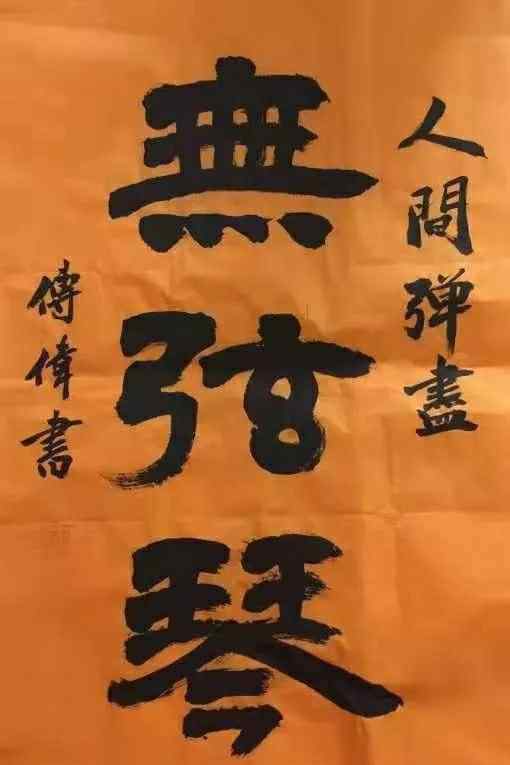 人間弹盡
無弦琴
傅偉書